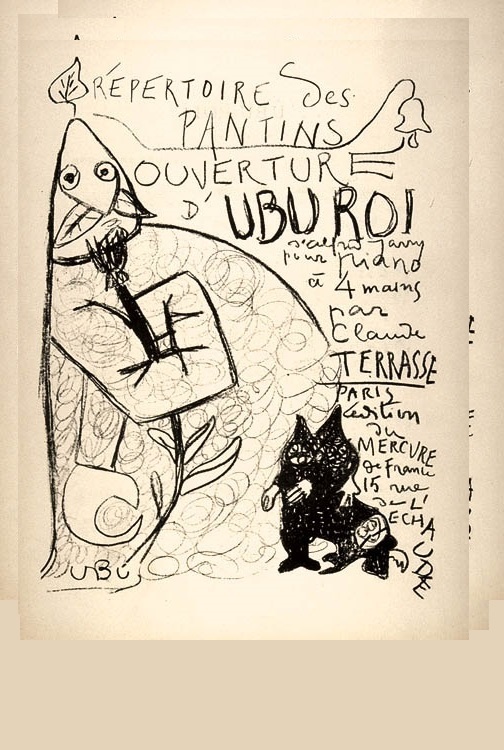 RÉPERTOIRE des
PANTINS
OUVERTURE
D'UBU ROI
d'Alfred Jarry
pour piano
à 4 mains
par
Claude
TERRASSE
PARIS
édition
du
MERCURE
de France
15 rue
de L'
ECHAUDE
UBU